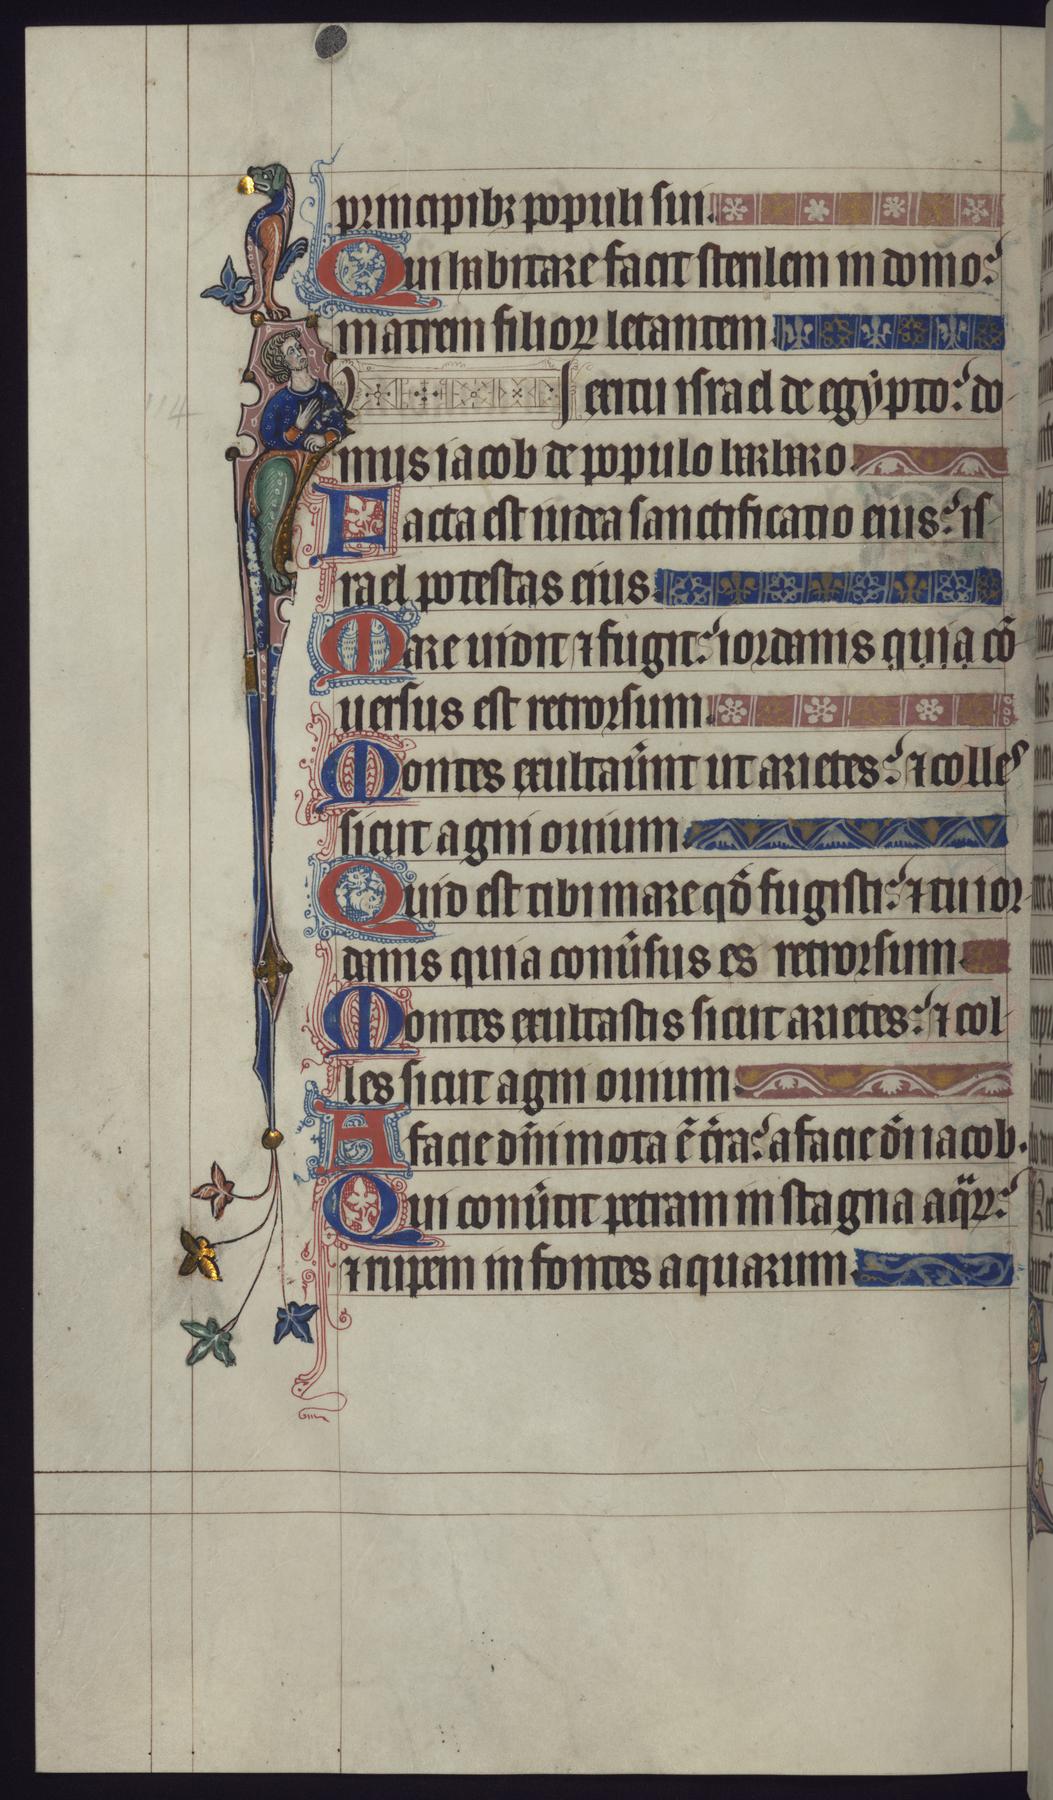 principibꝫ populi sui.
Qui habitare facit sterilem in domo:
matrem filioꝝ letantem
In exitu israel de egypto: do
mus iacob de populo barbaro
Facta est iudea sanctificatio eius: is
rael potestas eius
Mare uidit ⁊ fugit: iordanis quia cō
uersus est retrorsum
Montes exultau̾nt ut arietes: ⁊ colles
sicut agni ouium
Quid est tibi mare qd̄ fugisti: ⁊ tu ior
danis quia conu̾sus es retrorsum
Montes exultastis sicut arietes: ⁊ col
les sicut agni ouium
A facie dn̄i mota ē t̾ra: a facie dī iacob.
Qui conu̾tit petram in stagna aqᷓꝝ:
⁊ rupem in fontes aquarum
114